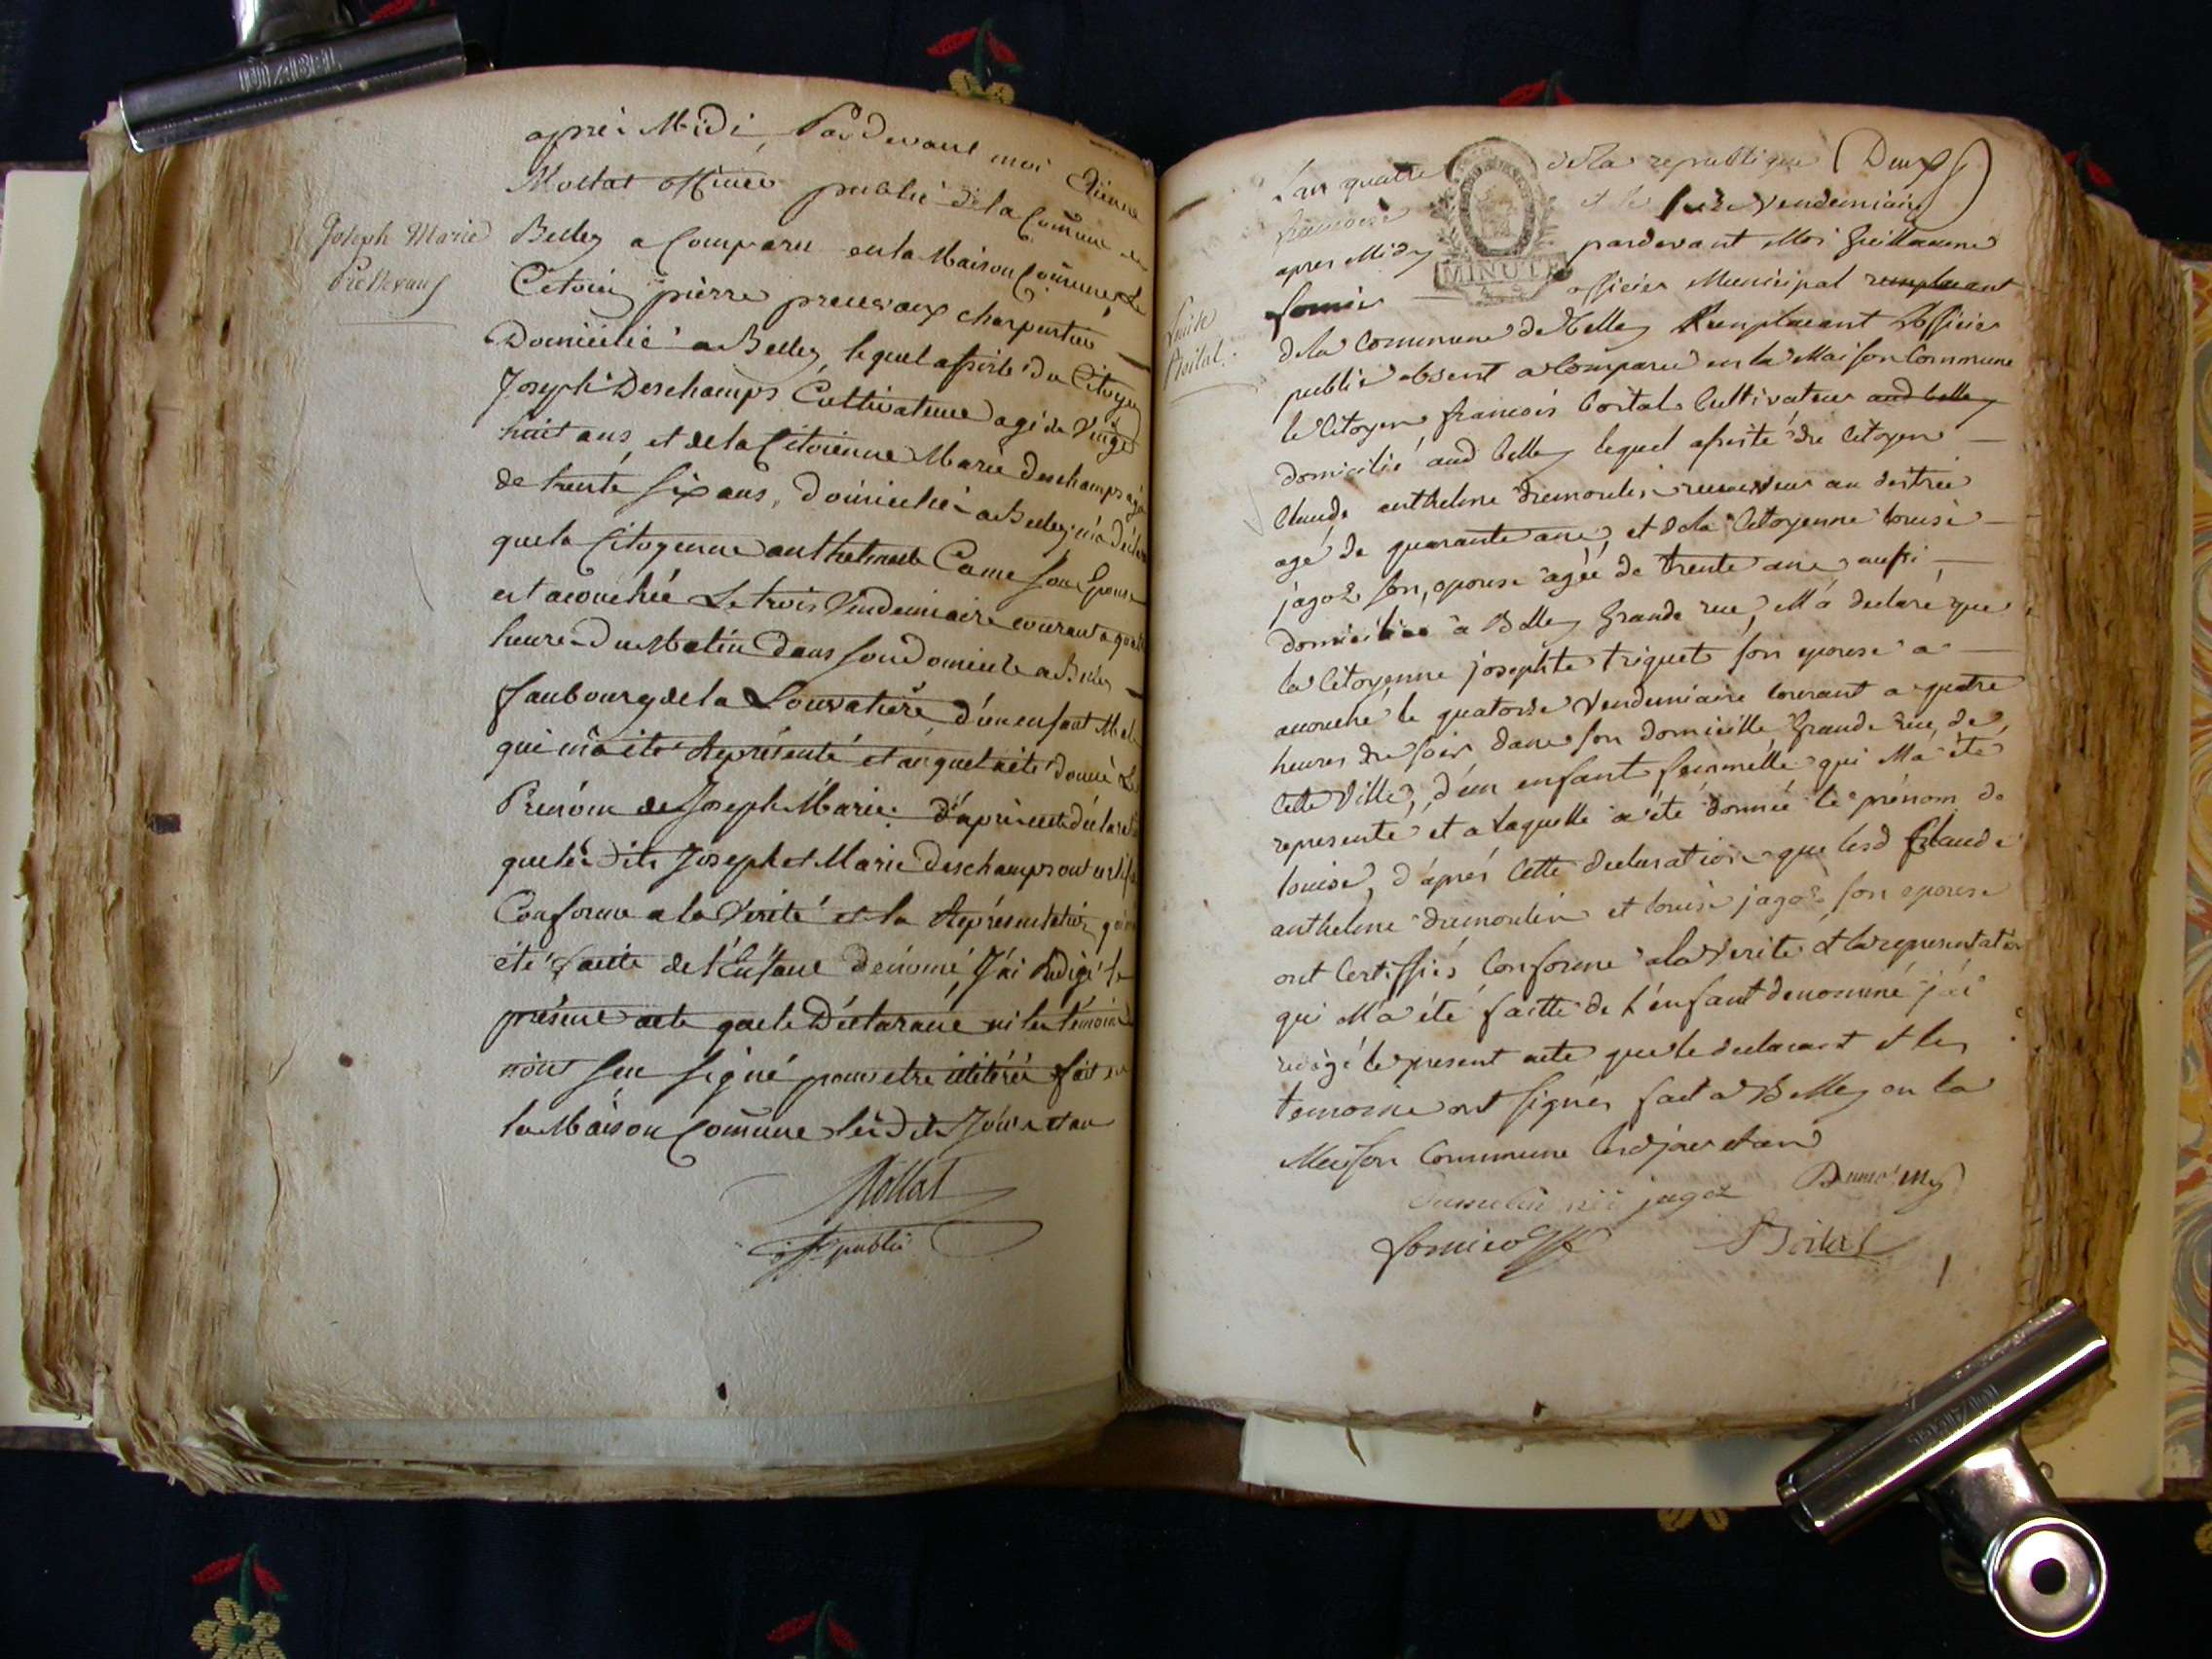 après Midi, Par devant moi Etienne
Mollat officier public de la Comune de
Joseph Marie
Belley a Comparu en la Maison Comune, Le
Citoien pierre preuvaux charpentier
Domicilié a Belley, lequel assisté du Citoyen
Joseph Deschamps Cultivateur agé de Vingt
huit ans, et de la Citoienne Marie deschamps agée
de trente six ans, domiciliés a Belley, m'a déclaré
que la Citoyenne anthelmette Came son Epouse
est acouchée Le trois Vendemiaire courant a quatre
heure du Matin Dans son Domicile a Belley
faubourg de la Louvatière d'un enfant Male
qui m'a été Représenté et auquel a été donné Le
Prénom de Joseph Marie. D'après cette déclaration
que les dits Joseph et Marie deschamps ont certifié
Conforme a la Verité et la Représentation qui m'a
été faitte de l'Enfant dénomé, J'ai Rédigé le
présent acte que le Déclarant ni les témoins
n'ont seu signé pour etre illitérés fait en
la Maison Comune les dits Jour et an
Mollat
off. public
L'an quatre de la republique
et le seize Vendemiaire
apres Midy pardevant Moi Guillaume
officier Municipal remplacant
Louise
de la Commune de Belley Remplacant L'officier
public absent a Comparu en la Maison Commune
le Citoyen francois Boital Cultivateur aud belley
domicilié aud belley lequel assisté du Citoyen
Claude anthelme dumoulin receveur au district
agé de quarante ans, et de la Citoyenne louise
jagoz son epouse agée de trente ans aussi
domiciliés a Belley Grande rue, M'a declaré que
la Citoyenne josephte triquet son epouse a
accouché le quatorse Vendemiaire Courant a quatre
heures du soir dans son domicille Grande Rue, de
Cette Ville, d'un enfant femmelle qui M'a été
representé et a laquelle a été donnée le prénom de
louise, d'aprés Cette declaration que lesd Claude
anthelme dumoulin et louise jagoz son epouse
ont Certiffiés Conforme a la Verité et la representation
qui M'a été faitte de l'enfant denommé j'ai
redigé le present acte que le declarant et les
temoins ont signés fait a Belley en la
Maison Commune lesd jour et an
dumoulin née jagoz
Boital
MINUTE